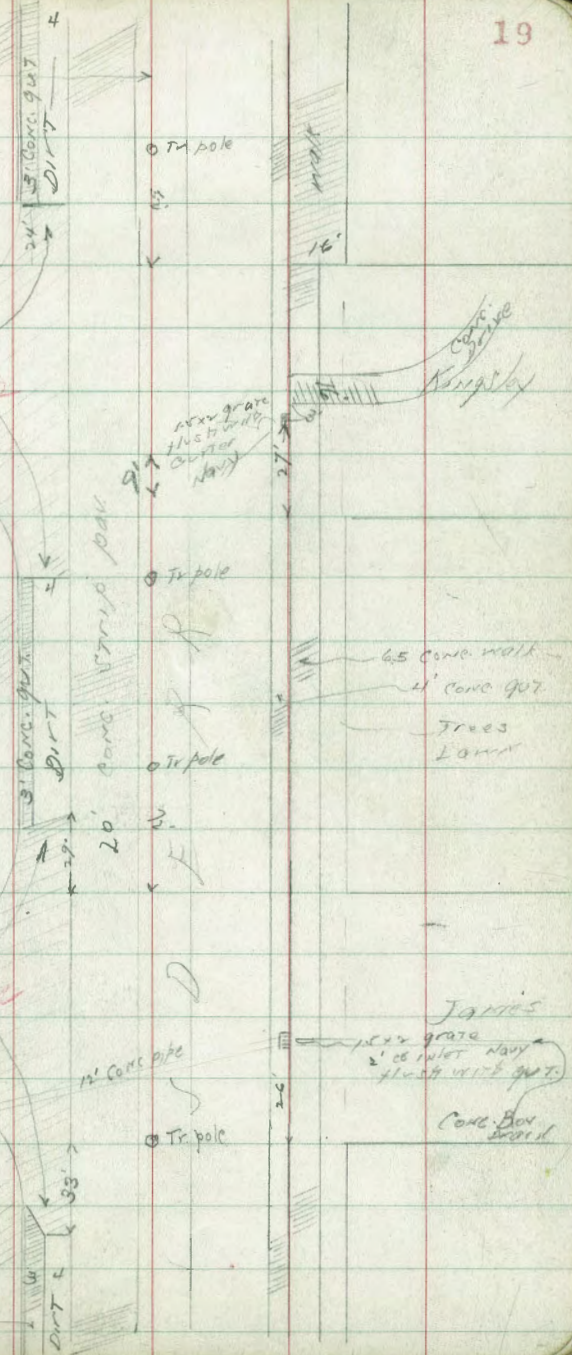 19
4
3' Conc. gut
DIRT
24'
Tr pole
16'
Conc.
Drive
Kingsley
1.5x2 grate
flush with
Gutter
Navy
27'
9'
4'
Tr pole
20' Conc. Strip pav.
6.5 Conc. walk
4' conc gut.
Trees
Lawn
3' Conc. gut.
DIRT
Tr pole
29'
James
1.5x2 grate
2' cb inlet Navy
flush with gut.
12" Conc pipe
26'
Conc. Box
Drain
Tr. pole
33'
3
DIRT 4